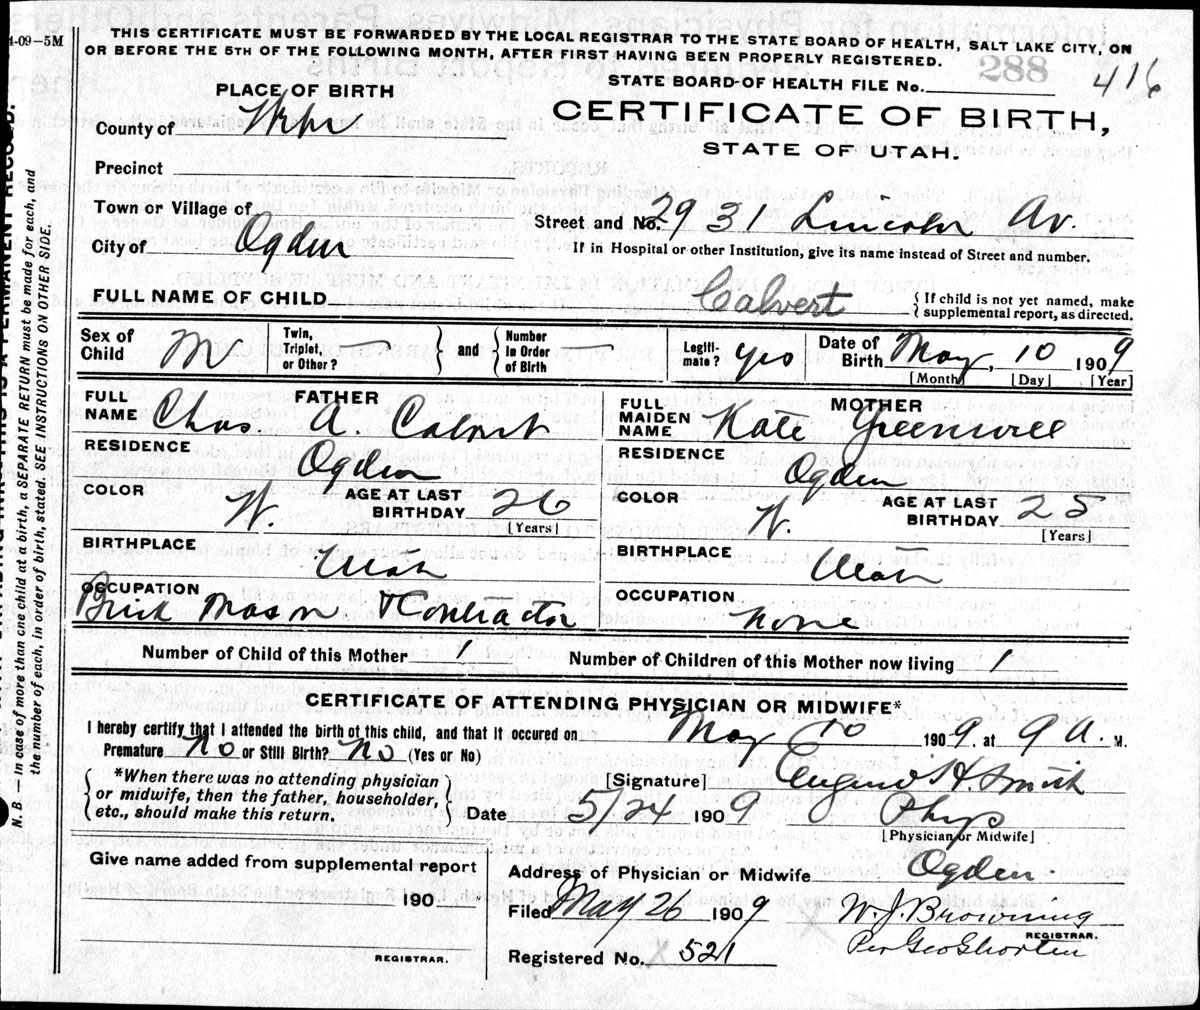 4-09-5M
THIS CERTIFICATE MUST BE FORWARDED BY THE LOCAL REGISTRAR TO THE STATE BOARD OF HEALTH, SALT LAKE CITY, ON
OR BEFORE THE 5TH OF THE FOLLOWING MONTH, AFTER FIRST HAVING BEEN PROPERLY REGISTERED.
288
STATE BOARD OF HEALTH FILE No. 416
PLACE OF BIRTH
CERTIFICATE OF BIRTH,
STATE OF UTAH.
County of
Precinct
Town or Village of
Street and No. 2931 Lincoln Av.
City of Ogden
If in Hospital or other Institution, give its name instead of Street and number.
FULL NAME OF CHILD Calvert
{ If child is not yet named, make
supplemental report, as directed.
Sex of Child M
Twin, Triplet, or Other? —
and
Number in Order of Birth —
Legitimate? yes
Date of Birth May, 10 1909
[Month] [Day] [Year]
FATHER
FULL NAME Chas. A. Calvert
RESIDENCE Ogden
COLOR W.
AGE AT LAST BIRTHDAY 26
[Years]
BIRTHPLACE Utah
OCCUPATION Brick Mason & Contractor
MOTHER
FULL MAIDEN NAME Kate Greenwell
RESIDENCE Ogden
COLOR W.
AGE AT LAST BIRTHDAY 25
[Years]
BIRTHPLACE Utah
OCCUPATION None
Number of Child of this Mother 1
Number of Children of this Mother now living 1
CERTIFICATE OF ATTENDING PHYSICIAN OR MIDWIFE*
I hereby certify that I attended the birth of this child, and that it occured on May 10 1909, at 9 A. M.
Premature No or Still Birth? No (Yes or No)
*When there was no attending physician
or midwife, then the father, householder,
etc., should make this return.
[Signature] Eugene H. Smith
Date 5/24 1909 Phys
[Physician or Midwife]
Give name added from supplemental report
190
REGISTRAR.
Address of Physician or Midwife Ogden.
Filed May 26 1909 W. J. Browning
REGISTRAR.
Registered No. 521
Per Geo Shorten
N. B. — In case of more than one child at a birth, a SEPARATE RETURN must be made for each, and
the number of each, in order of birth, stated. SEE INSTRUCTIONS ON OTHER SIDE.